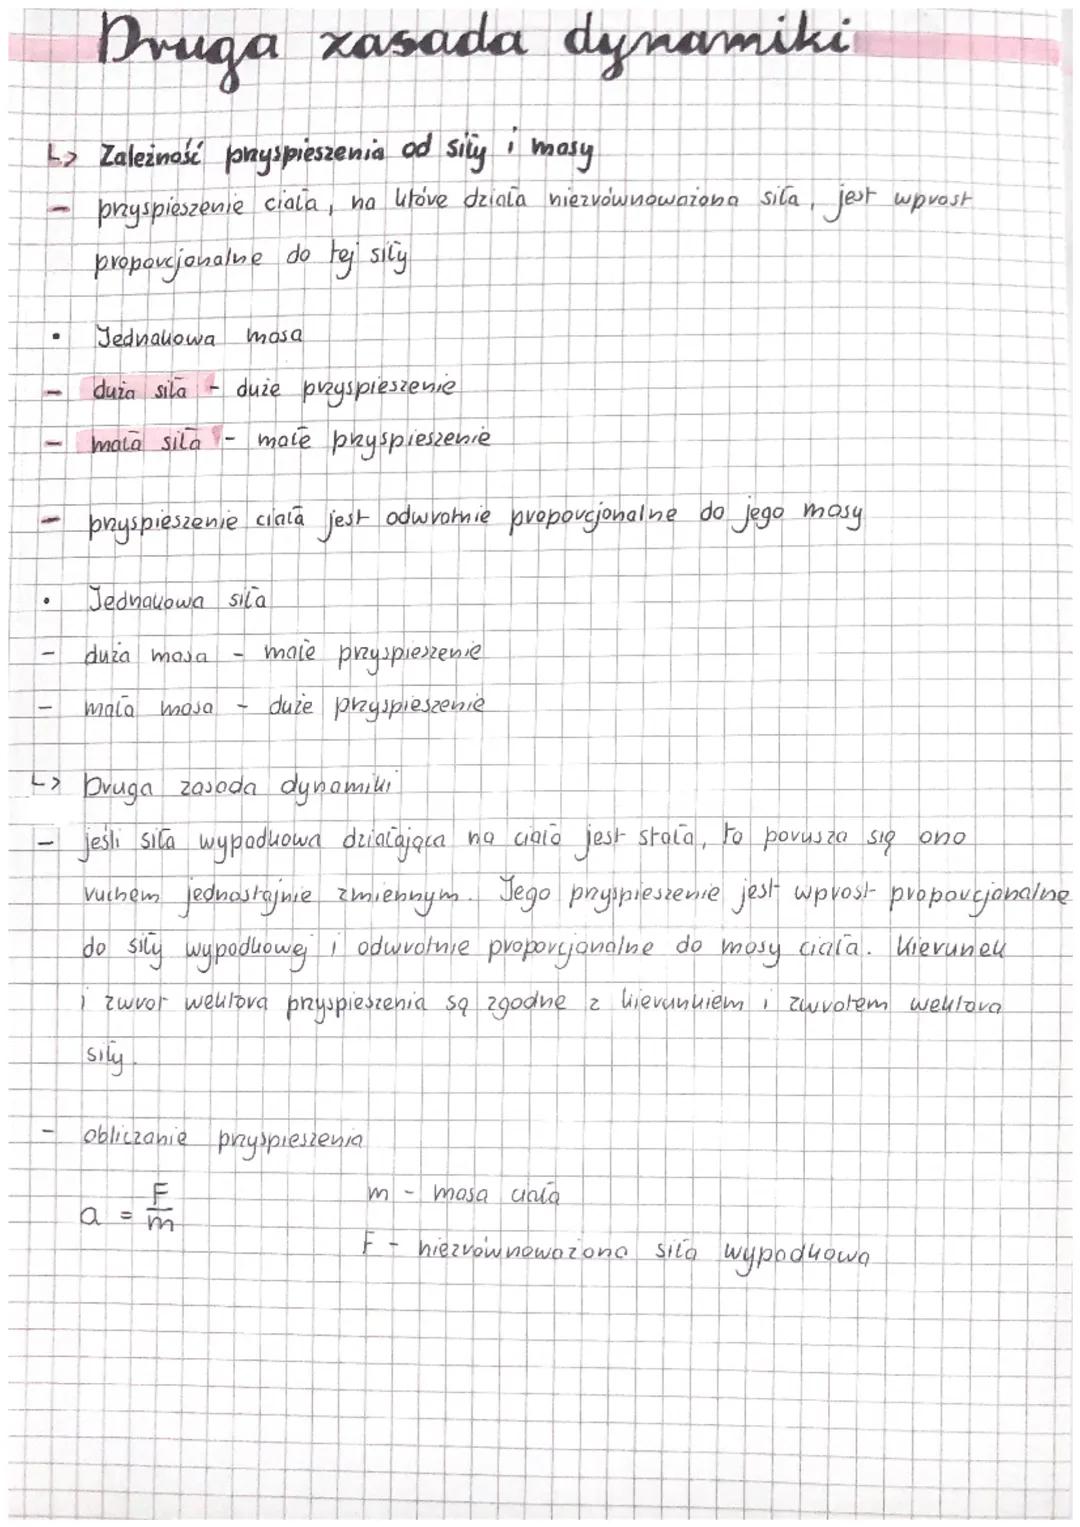 Druga zasada dynamiki
↳ Zależność przyspieszenia od siły i masy
- przyspieszenie ciała, na które działa niezrównoważona siła, jest wprost
proporcjonalne do tej siły
• Jednakowa masa
- duża siła - duże przyspieszenie
- mała siła - małe przyspieszenie
- przyspieszenie ciała jest odwrotnie proporcjonalne do jego masy
• Jednakowa siła
- duża masa - małe przyspieszenie
- mała masa - duże przyspieszenie
↳ Druga zasada dynamiki
- jeśli siła wypadkowa działająca na ciało jest stała, to porusza się ono
ruchem jednostajnie zmiennym. Jego przyspieszenie jest wprost proporcjonalne
do siły wypadkowej i odwrotnie proporcjonalne do masy ciała. Kierunek
i zwrot wektora przyspieszenia są zgodne z kierunkiem i zwrotem wektora
siły.
- obliczanie przyspieszenia
a = F/m
m - masa ciała
F - niezrównoważona siła wypadkowa